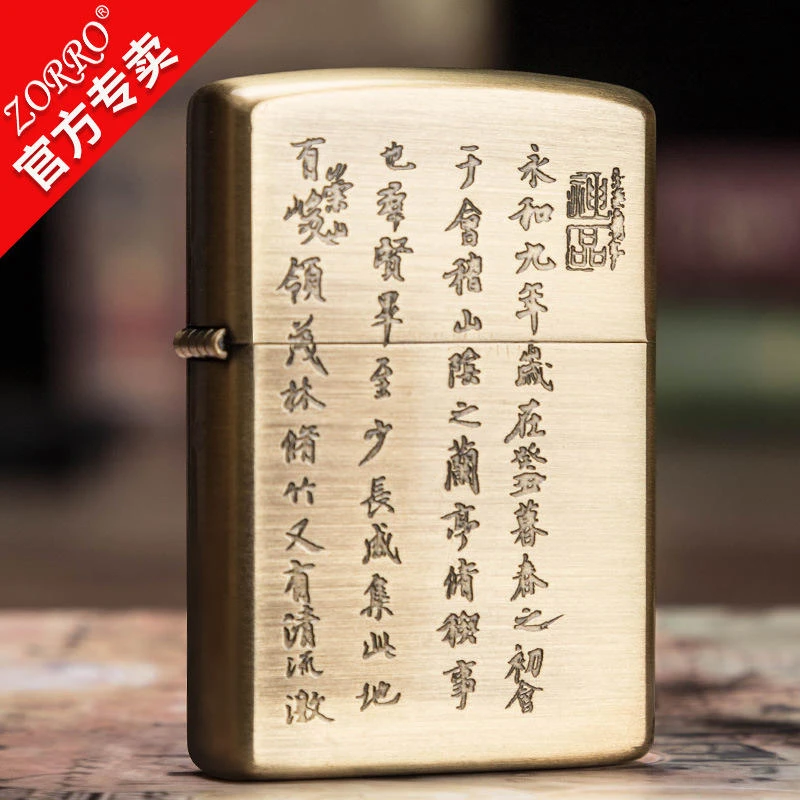 ZORRO®
官方专卖
神品
永和九年歲在癸丑暮春之初會
于會稽山陰之蘭亭脩稧事
也羣賢畢至少長咸集此地
有崇山峻領茂林脩竹又有清流激